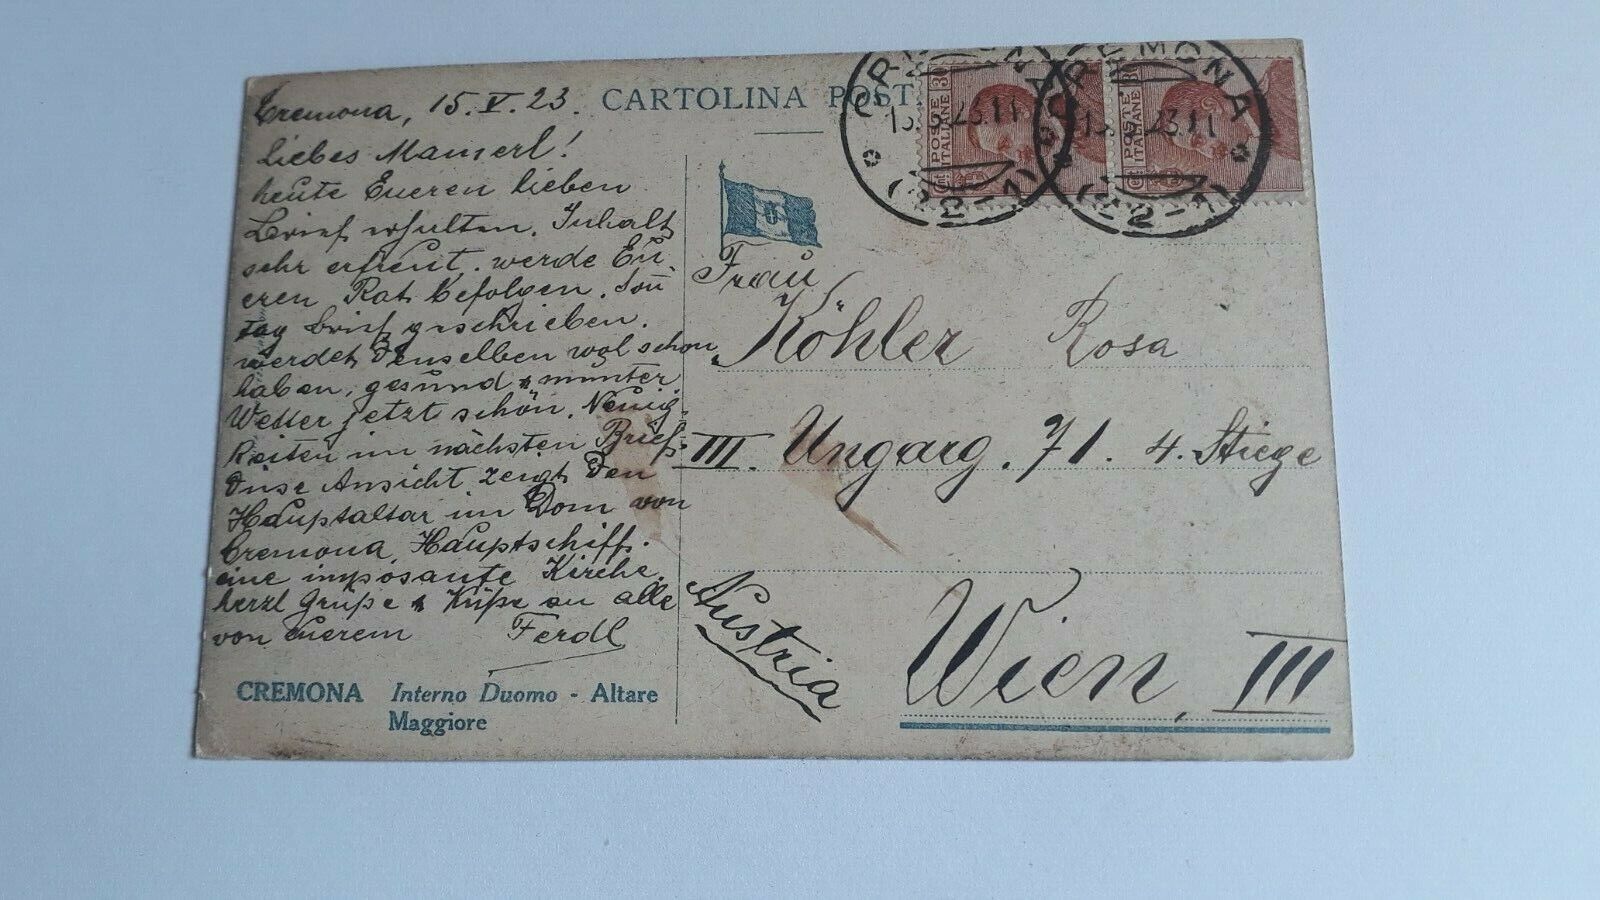 Cremona, 15.V.23.
Liebes Mamerl!
heute Eueren lieben
Brief erhalten. Inhalt
sehr erfreut. werde Eu
eren Rat befolgen. Son̄
tag Brief geschrieben.
werdet denselben wol schon
haben, gesund & munter
Wetter jetzt schön. Neuig-
keiten im nächsten Brief.
Diese Ansicht zeigt den
Hauptaltar im Dom von
Cremona, Hauptschiff.
eine imposante Kirche.
herzl Grüße & Küße an alle
von Euerem Ferdl
CREMONA Interno Duomo - Altare
Maggiore
CARTOLINA POST
POSTE ITALIANE 30
POSTE ITALIANE 30
CREMONA
23.11
CREMONA
23.11
Frau
Köhler Rosa
III. Ungarg. 71. 4. Stiege
Austria
Wien, III